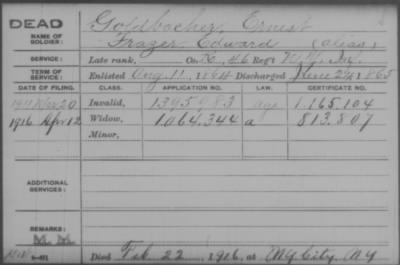 DEAD
NAME OF SOLDIER: Goldbacher, Ernest
Frazer, Edward (alias)
SERVICE: Late rank, Co. K, 46 Reg't N.Y. Inf.
TERM OF SERVICE: Enlisted Aug. 11, 1864 Discharged June 24, 1865
DATE OF FILING. CLASS. APPLICATION NO. LAW. CERTIFICATE NO.
Nov 20 Invalid, 1395983 1.165.104
1916 Apr 12 Widow, 1.064.344 a 813.807
Minor,
ADDITIONAL SERVICES:
REMARKS:
M. M.
Died Feb 22, 1916, at NY City, NY